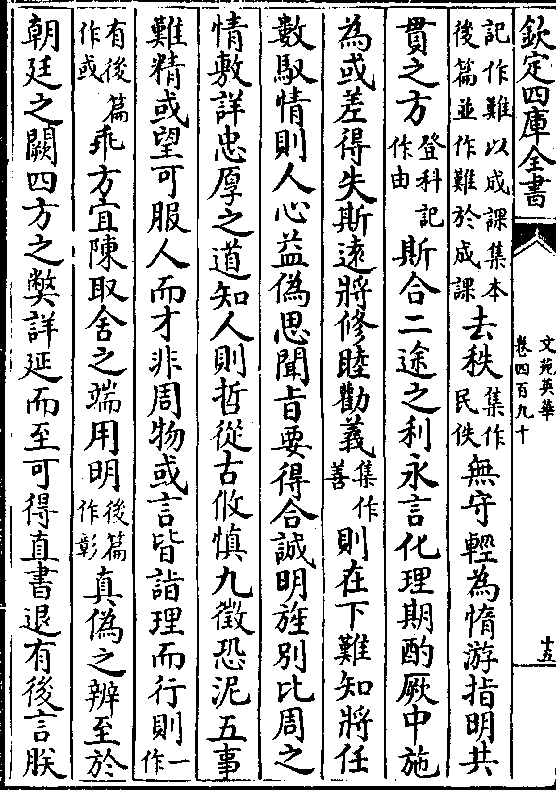 欽定四庫全書
文苑英華
卷四百九十
十五
記作難以成課集本後篇並作難於成課去秩集作民佚無守輕為惰游指明共
貫之方登科記作由斯合二途之利永言化理期酌厥中施
為或差得失斯遠將修睦勸義集作善則在下難知將任
數馭情則人心益偽思聞旨要得合誠明旌別比周之
情敷詳忠厚之道知人則哲從古攸慎九徵恐泥五事
難精或望可服人而才非周物或言皆詣理而行則一作
有後篇作或乖方宜陳取舍之端用明後篇作彰真偽之辨至於
朝廷之闕四方之獘詳延而至可得直書退有後言朕